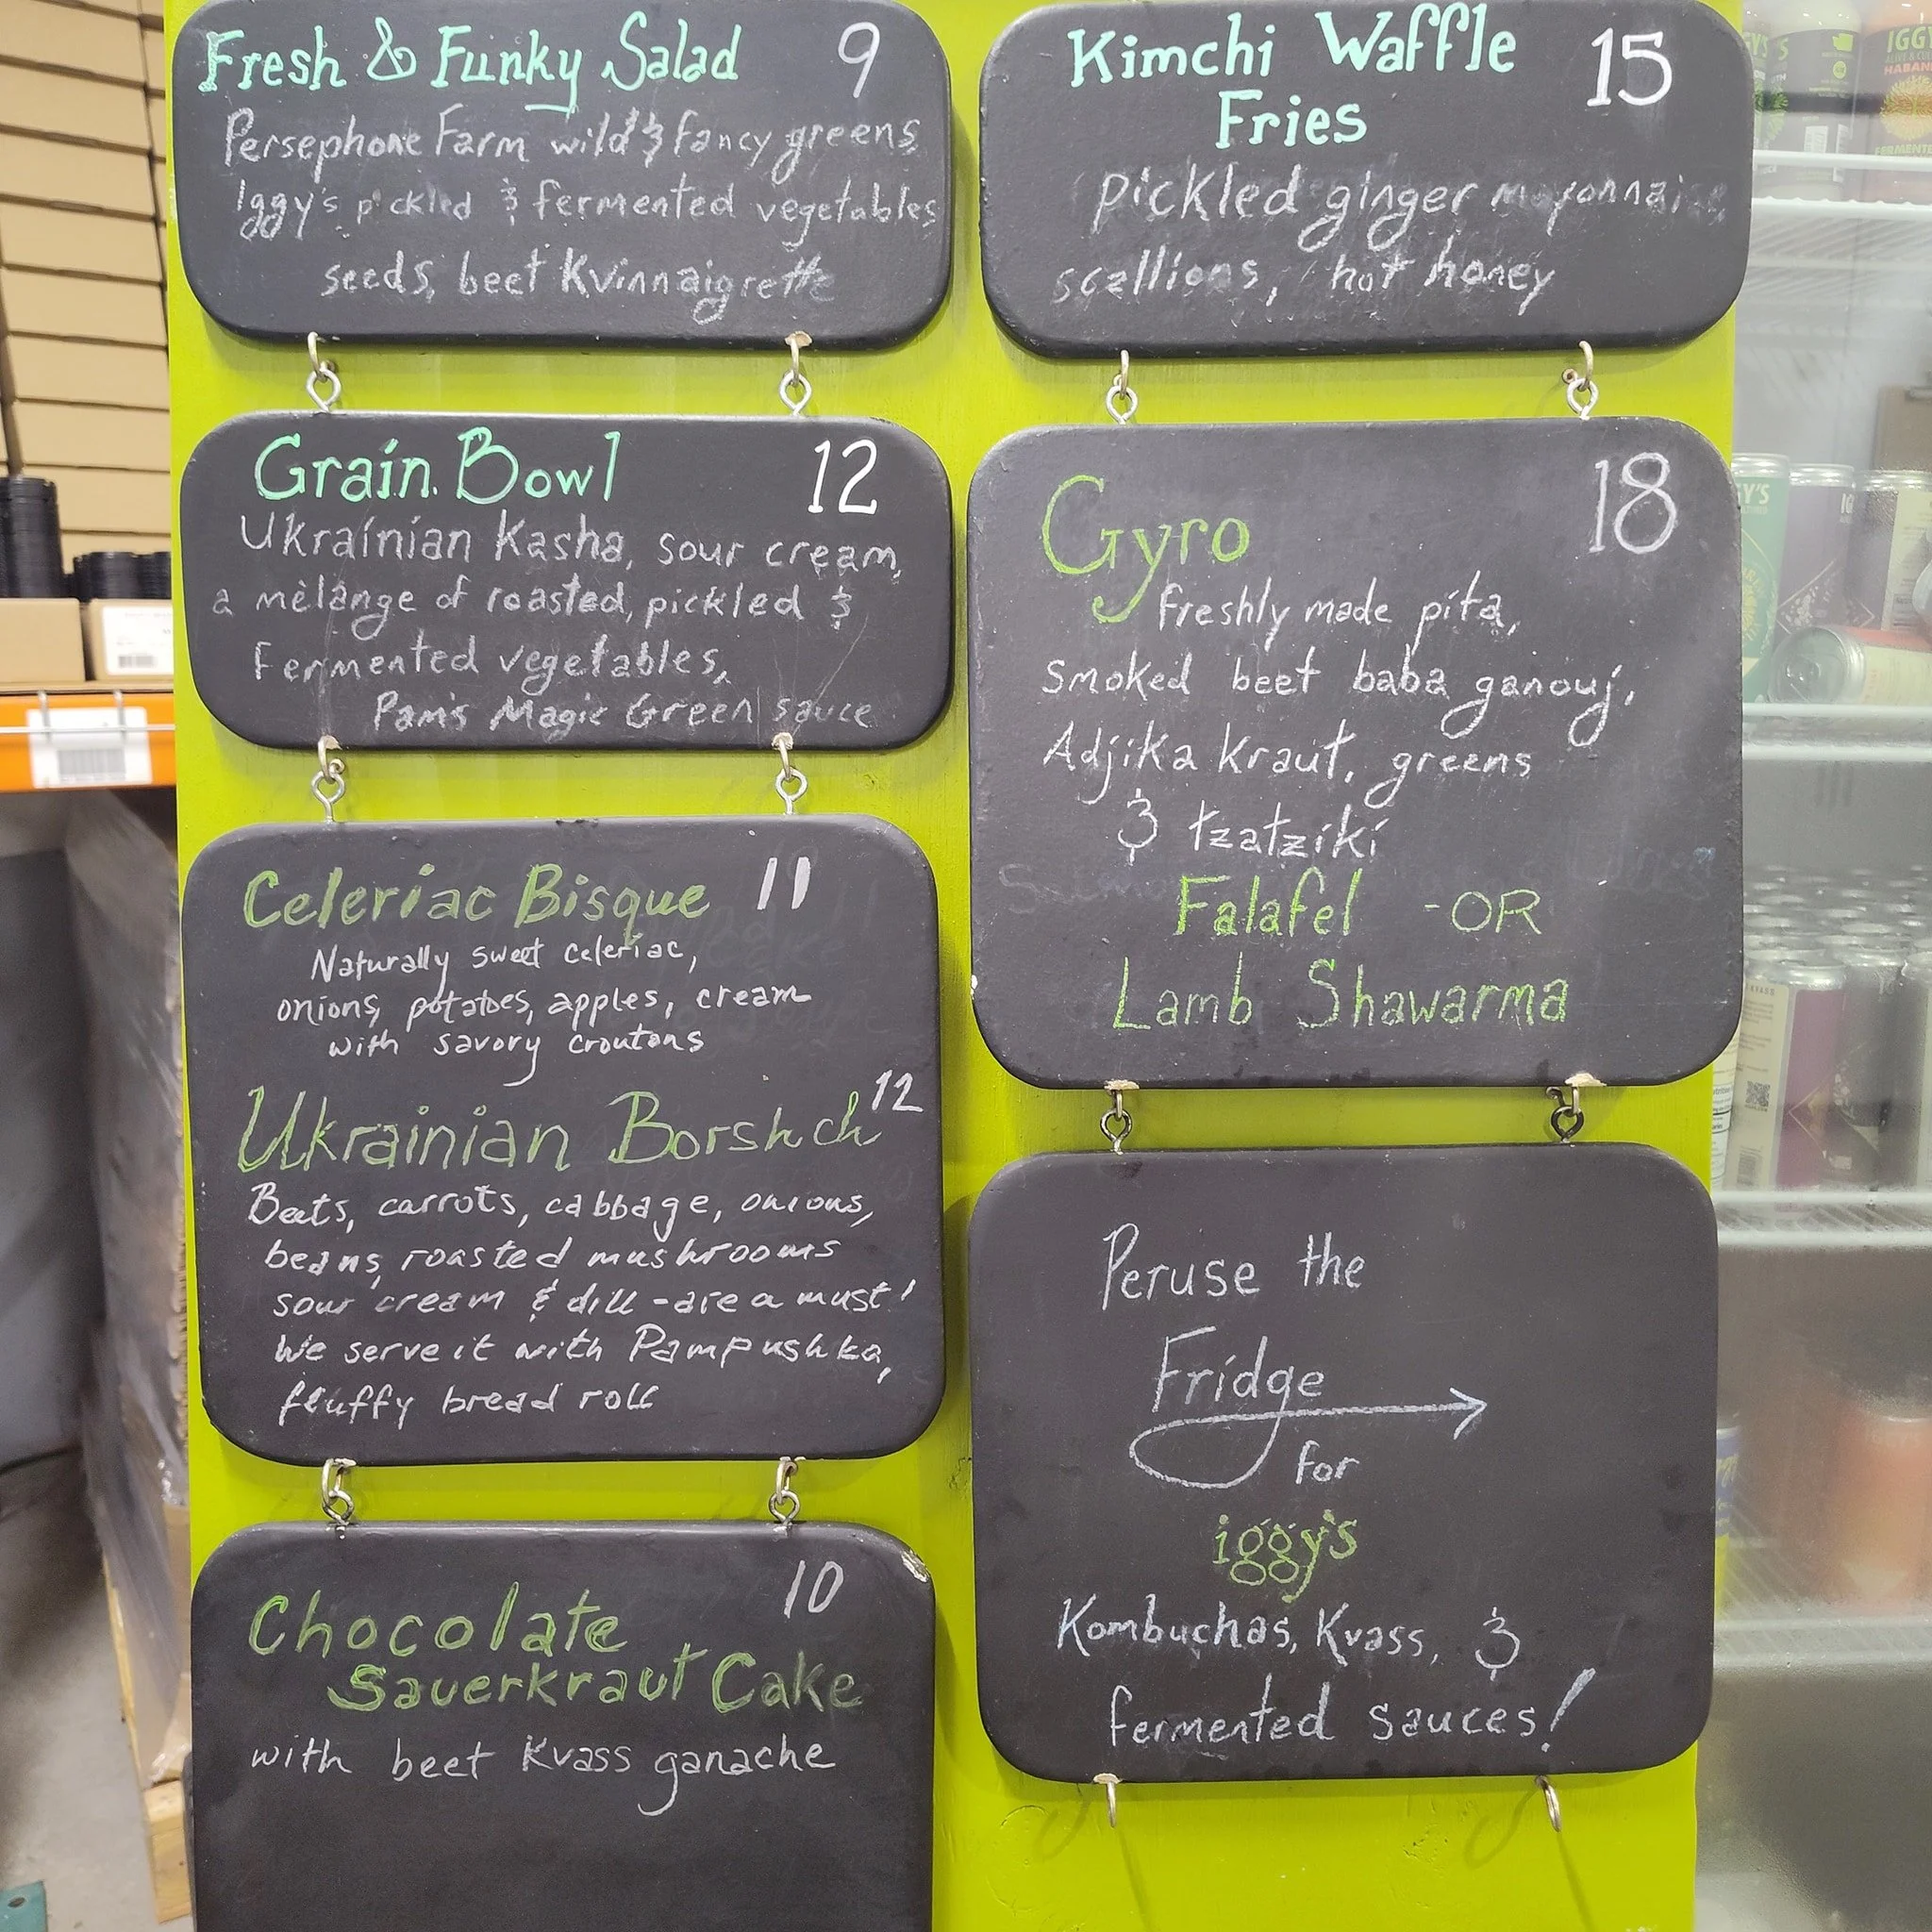 Fresh & Funky Salad 9
Persephone Farm wild & fancy greens
Iggy's pickled & fermented vegetables
seeds, beet Kvinnaigrette
Grain Bowl 12
Ukrainian Kasha, sour cream,
a mèlange of roasted, pickled &
Fermented vegetables,
Pam's Magic Green sauce
Celeriac Bisque 11
Naturally sweet celeriac,
onions, potatoes, apples, cream
with savory croutons
Ukrainian Borshch 12
Beets, carrots, cabbage, onions,
beans, roasted mushrooms
sour cream & dill - are a must!
We serve it with Pampushka,
fluffy bread roll
Chocolate 10
Sauerkraut Cake
with beet Kvass ganache
Kimchi Waffle 15
Fries
pickled ginger mayonnaise
scallions, hot honey
Gyro 18
freshly made pita,
smoked beet baba ganouj,
Adjika Kraut, greens
& tzatziki
Falafel - OR
Lamb Shawarma
Peruse the
Fridge
for
iggy's
Kombuchas, Kvass, &
fermented sauces!
IGGY
HABAN
FERMENTE